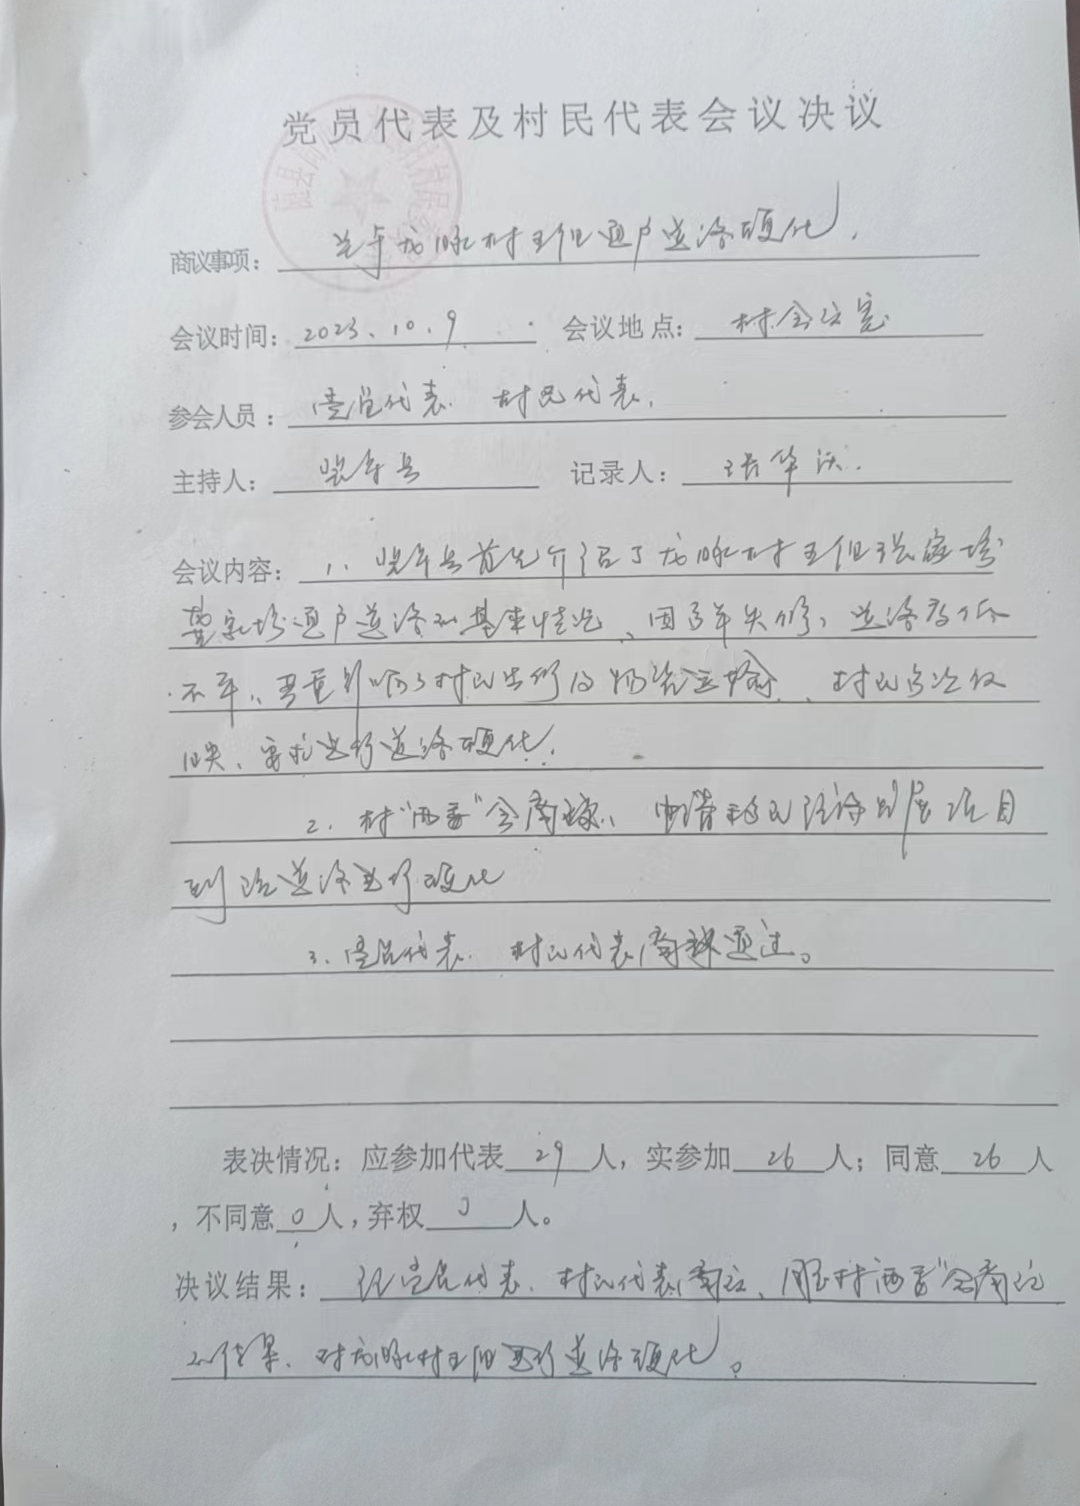 党员代表及村民代表会议决议
商议事项： 关于龙脉村五组通户道路硬化.
会议时间：2023.10.9 会议地点：村会议室
参会人员：党员代表. 村民代表.
主持人： 记录人：华
会议内容：1、首先介绍了龙脉村五组
通户道路的基本情况、因多年失修、道路高低
不平、严重影响了村民出行及物资运输、村民多次反
映、要求进行道路硬化.
2、村"两委"会商议、申请移民后项目
到该道路进行硬化
3、党员代表. 村民代表商议通过。
表决情况：应参加代表29人，实参加26人；同意26人
，不同意0人，弃权0人。
决议结果：经党员代表、村民代表商议、同意村"两委"会商议
的结果、对龙脉村五组进行道路硬化。